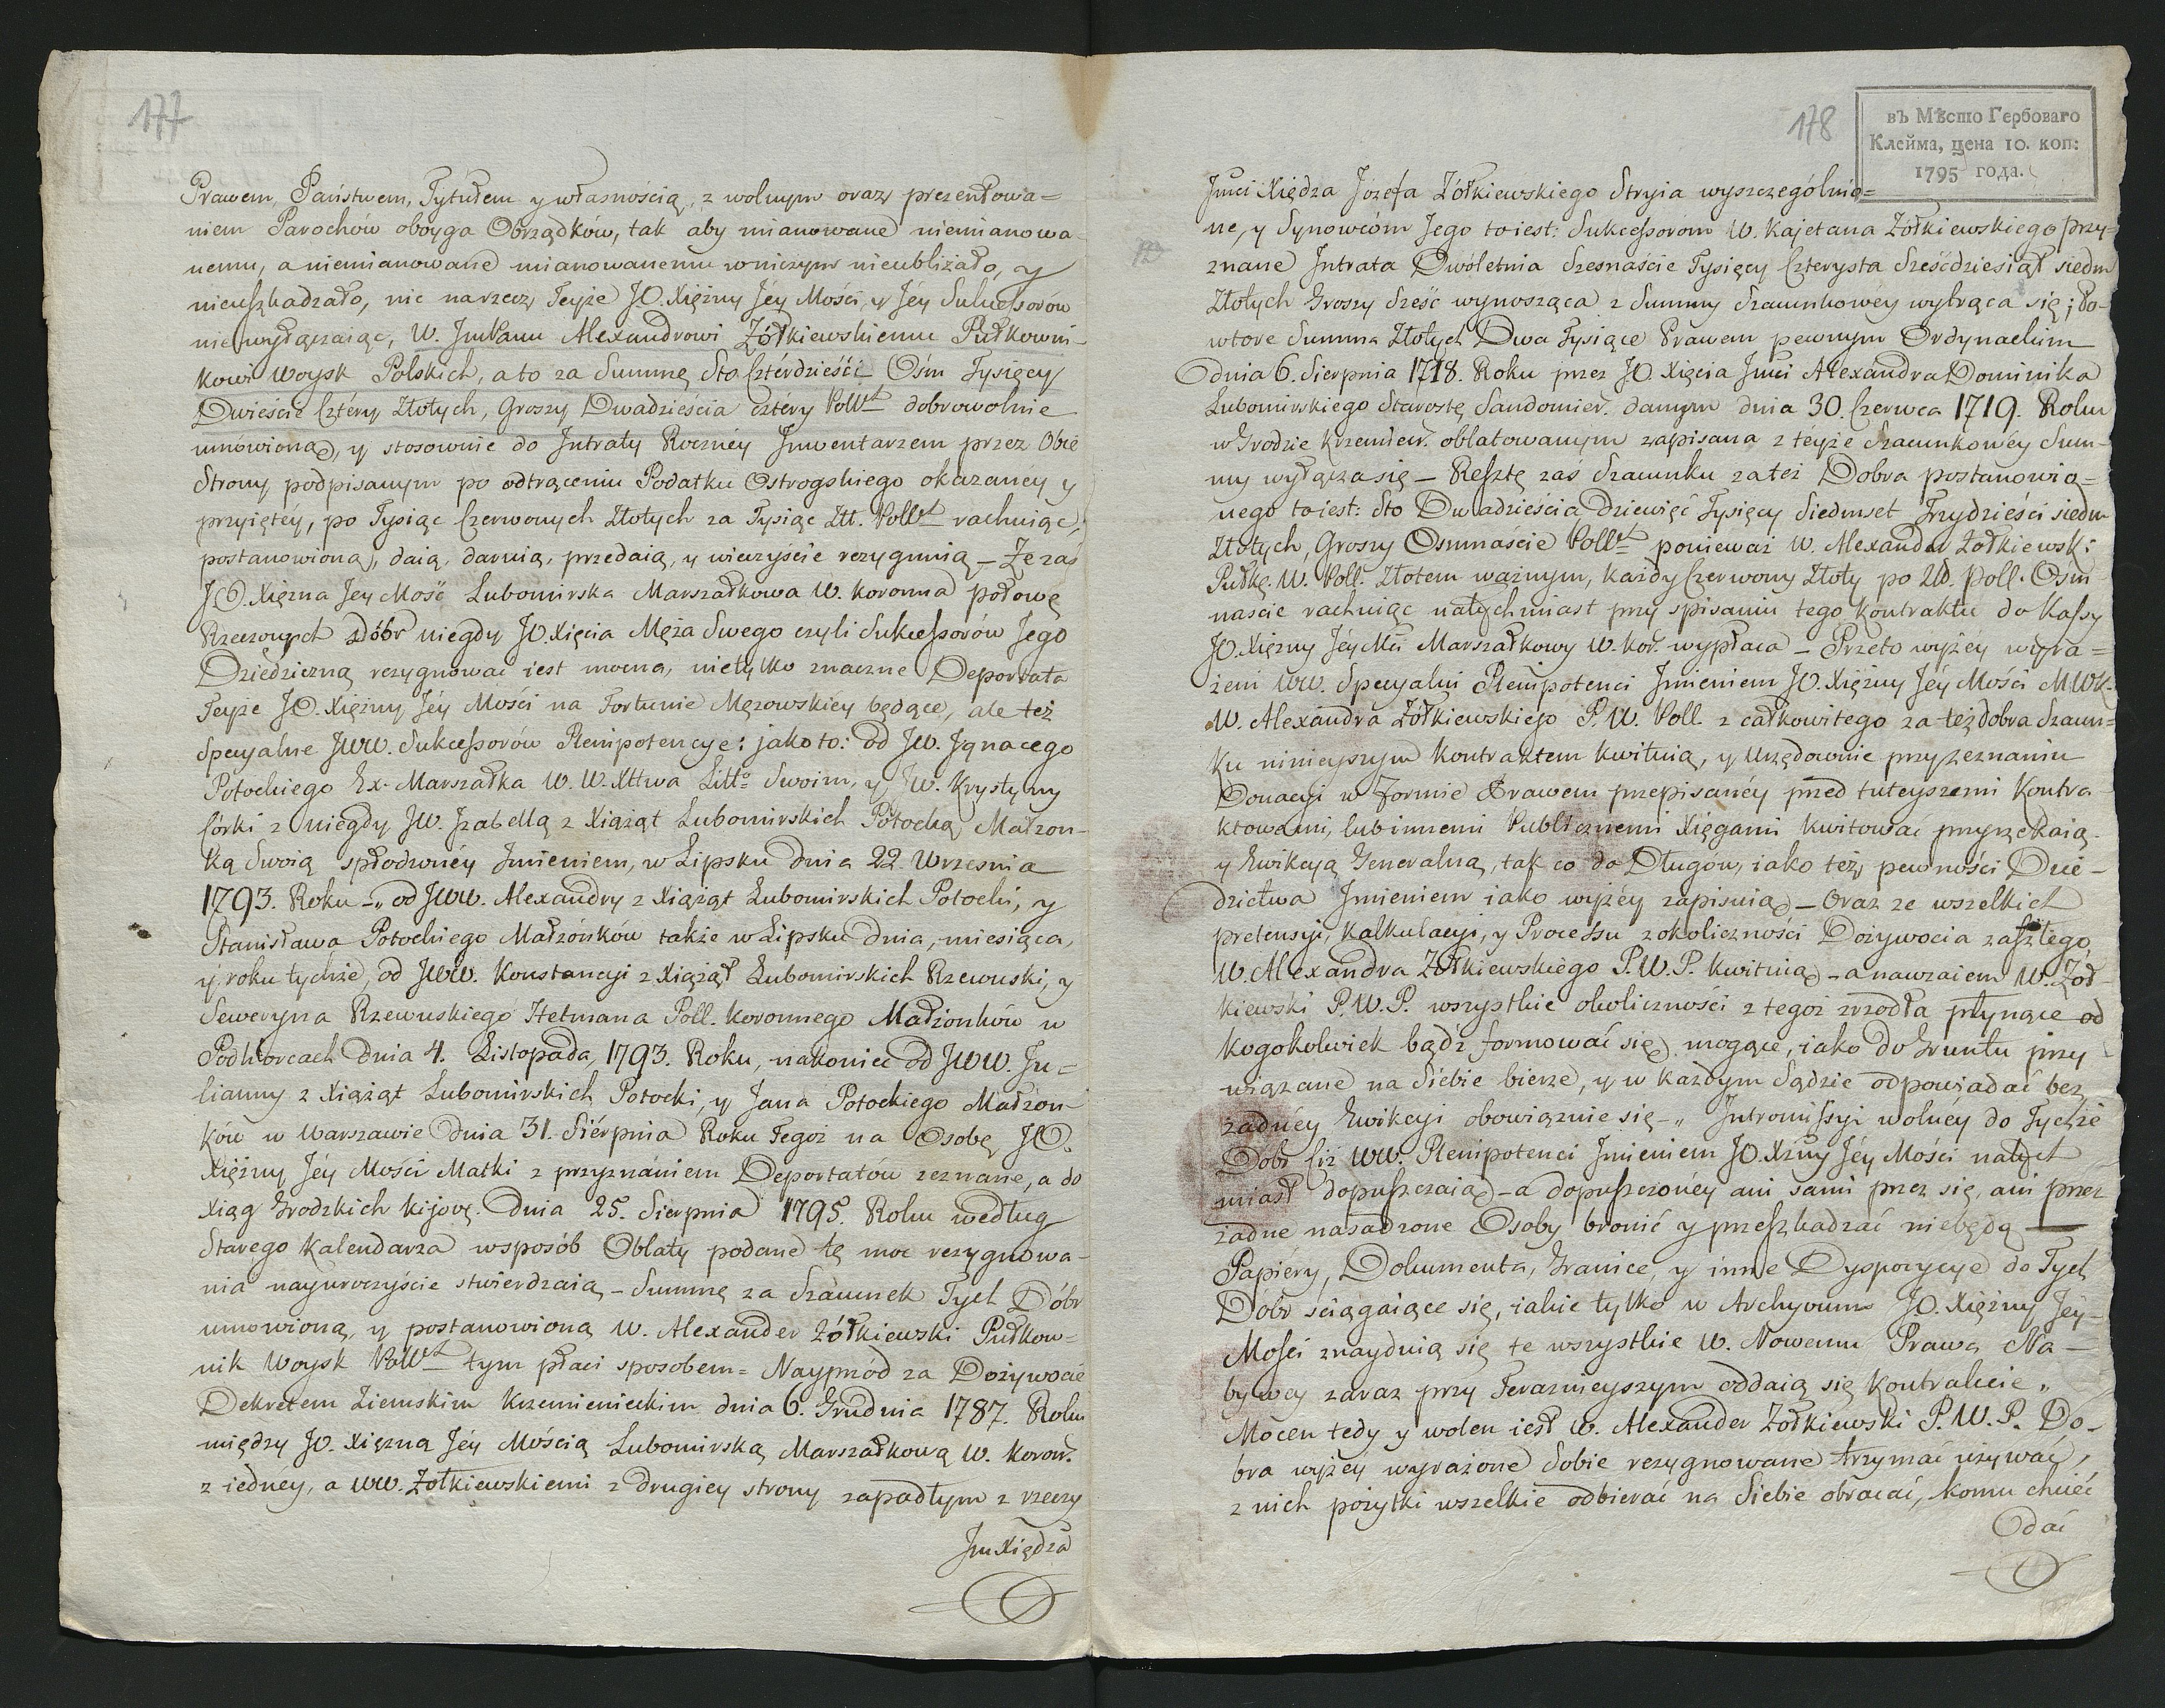 177
Prawem, Państwem, Tytułem y własnością, z wolnym oraz prezentowa=
niem Parochów oboyga Obrządków, tak aby mianowane niemianowa-
nemu, a niemianowane mianowanemu w niczym nieubliżało, y
nieuszkadzało, nic na rzecz Teyże JO. Xiężny Jéy Mości, y Jéy Sukcessorów
nie wyłączaiąc, W. JmPanu Alexandrowi Żółkiewskiemu Pułkowni-
kowi Woysk Polskich, a to za Summę Sto Czterdzieści Ośm Tysięcy
Dwieście Cztéry Złotych, Groszy Dwadzieścia cztéry Poll. dobrowolnie
umówioną, y stosownie do Intraty Rocznéy Inwentarzem przez Obie
Strony podpisanym po odtrąceniu Podatku Ostrogskiego okazanéy y
przyiętéy, po Tysiąc Czerwonych Złotych za Tysiąc Złt. Poll. rachuiąc,
postanowioną, daią, daruią, przedaią, y wieczyście rezygnuią – Że zaś
JO. Xiężna Jey Mość Lubomirska Marszałkowa W. Koronna połowę
Rzeczonych Dóbr niegdy JO. Xięcia Męża Swego czyli Sukcessorów Jego
Dziedziczną rezygnować iest mocna, nietylko znaczne Deportata
Teyże JO. Xiężny Jéy Mości na Fortunie Mężowskiey będące, ale też
Specyalne JWW. Sukcessorów Plenipotencye: jako to: od JW. Ignacego
Potockiego Ex-Marszałka W. W. Xttwa Litto Swoim, y JW. Krystyny
Córki z niegdy JW. Izabellą z Xiążąt Lubomirskich Potocką Małżon-
ką Swoią spłodzonéy Imieniem, w Lipsku dnia 22. Wrzesnia
1793. Roku –„ od JWW. Alexandry z Xiążąt Lubomirskich Potocki, y
Stanisława Potockiego Małżónków także w Lipsku dnia, miesiąca,
y roku tychże, od JWW. Konstancyi z Xiążąt Lubomirskich Rzewuski, y
Seweryna Rzewuskiego Hetmana Poll. Koronnego Małżonków w
Podhorcach dnia 4. Listopada, 1793. Roku, nakoniec od JWW. Ju=
lianny z Xiążąt Lubomirskich Potocki, y Jana Potockiego Małżon-
ków w Warszawie dnia 31. Siérpnia Roku Tegoż na Osobę JO.
Xiężny Jéy Mości Matki z przyznaniem Deportatów zeznane, a do
Xiąg Grodzkich Kijow. dnia 25. Sierpnia 1795. Roku według
Starego Kalendarza wsposób Oblaty podane tę moc rezygnowa-
nia nayuroczyście stwierdzaią – Summę za Szacunek Tych Dóbr
umowioną, y postanowioną W. Alexander Żółkiewski Pułkow=
nik Woysk Poll. tym płaci sposobem = Nayprzód za Dożywocie
Dekretem Ziemskim Krzemienieckim dnia 6. Grudnia 1787. Roku
między JO. Xiężną Jéy Mością Lubomirską Marszałkową W. Koron.
z iednéy, a WW. Żołkiewskiemi z drugiey strony zapadłym z rzeczy
JmXiędza
178
въ Мѣсто Гербоваго
Клейма, цена 10. коп:
1795 года.
Jmci Xiędza Józefa Żółkiewskiego Stryia wyszczególnio=
ne, y Synowcóm Jego toiest: Sukcessorom W. Kajetana Żółkiewskiego przy-
znane Intrata Dwóletnia Szesnaście Tysięcy Czterysta Sześćdziesiąt siedm
Złotych Groszy Sześć wynosząca z Summy Szacunkowéy wytrąca się; Po-
wtore Summa Złotych Dwa Tysiące Prawem pewnym Ordynackim
dnia 6. Sierpnia 1718. Roku przez JO. Xięcia Jmci Alexandra Dominika
Lubomirskiego Starostę Sandomier. danym dnia 30. Czerwca 1719. Roku
w Grodzie Krzemien. oblatowanym zapisana z téyże Szacunkowéy Sum-
my wyłącza się – Resztę zas Szacunku za też Dobra postanowio=
nego toiest: Sto Dwadzieścia Dziewięć Tysięcy Siedmset Trzydzieści siedm
Złotych, Groszy Osmnaście Poll. ponieważ W. Alexander Żołkiewski
Pułk. W. Poll. Złotem ważnym, każdy Czerwony Złoty po Zło. Poll. Ośm-
nascie rachuiąc natychmiast przy spisaniu tego Kontraktu do Kassy
JO. Xiężny Jéy Mci Marszałkowy W. Kor. wypłaca – Przeto wyżéy wyra=
żeni WW. Specyalni Plenipotenci Imieniem JO. Xiężny Jéy Mości MWK.
W. Alexandra Żółkiewskiego P. W. Poll. z całkowitego za też dobra Szacun=
ku ninieyszym Kontraktem kwituią, y Urzędownie przy zeznaniu
Donacyi w Formie Prawem przepisanéy przed tuteyszemi Kontra-
ktowemi, lub innemi Publicznemi Xięgami kwitować przyrzekaią
y Ewikcyą Generalną, tak co do Długów, iako też pewności Dzie-
dzictwa Imieniem iako wyżéy zapisuią – Oraz ze wszelkich
pretensyi, Kalkulacyi, y Processu z okoliczności Dożywocia zaszłego,
W. Alexandra Żółkiewskiego P. W. P. kwituią – a nawzaiem W. Żół-
kiewski P. W. P. wszystkie okoliczności z tegoż zrzodła płynące od
kogokolwiek bądź formować się mogące, iako do Gruntu przy-
wiązane na Siebie bierze, y w każdym Sądzie odpowiadać bez
żadnéy Ewikcyi obowiązuie się –„ Intromissyi wolnéy do Tychże
Dóbr Ciż WW. Plenipotenci Imieniem JO. Xżny Jéy Mości natych
miast dopuszczaią – a dopuszczonéy ani sami przez się, ani przez
żadne nasadzone Osoby bronić y przeszkadzać niebędą —
Papiéry, Dokumenta, Granice, y inne Dyspozycye do Tych
Dóbr ściągaiące się, iakie tylko w Archyvum JO. Xiężny Jéy
Mości znayduią się te wszystkie W. Nowemu Prawa Na-
bywcy zaraz przy Teraznieyszym oddaią się Kontrakcie „
Mocen tedy y wolen iest W. Alexander Żołkiewski P. W. P. Do-
bra wyżey wyrażone Sobie rezygnowane trzymać używać,
z nich pożytki wszelkie odbierać na Siebie obracać, komu chcieć
dać